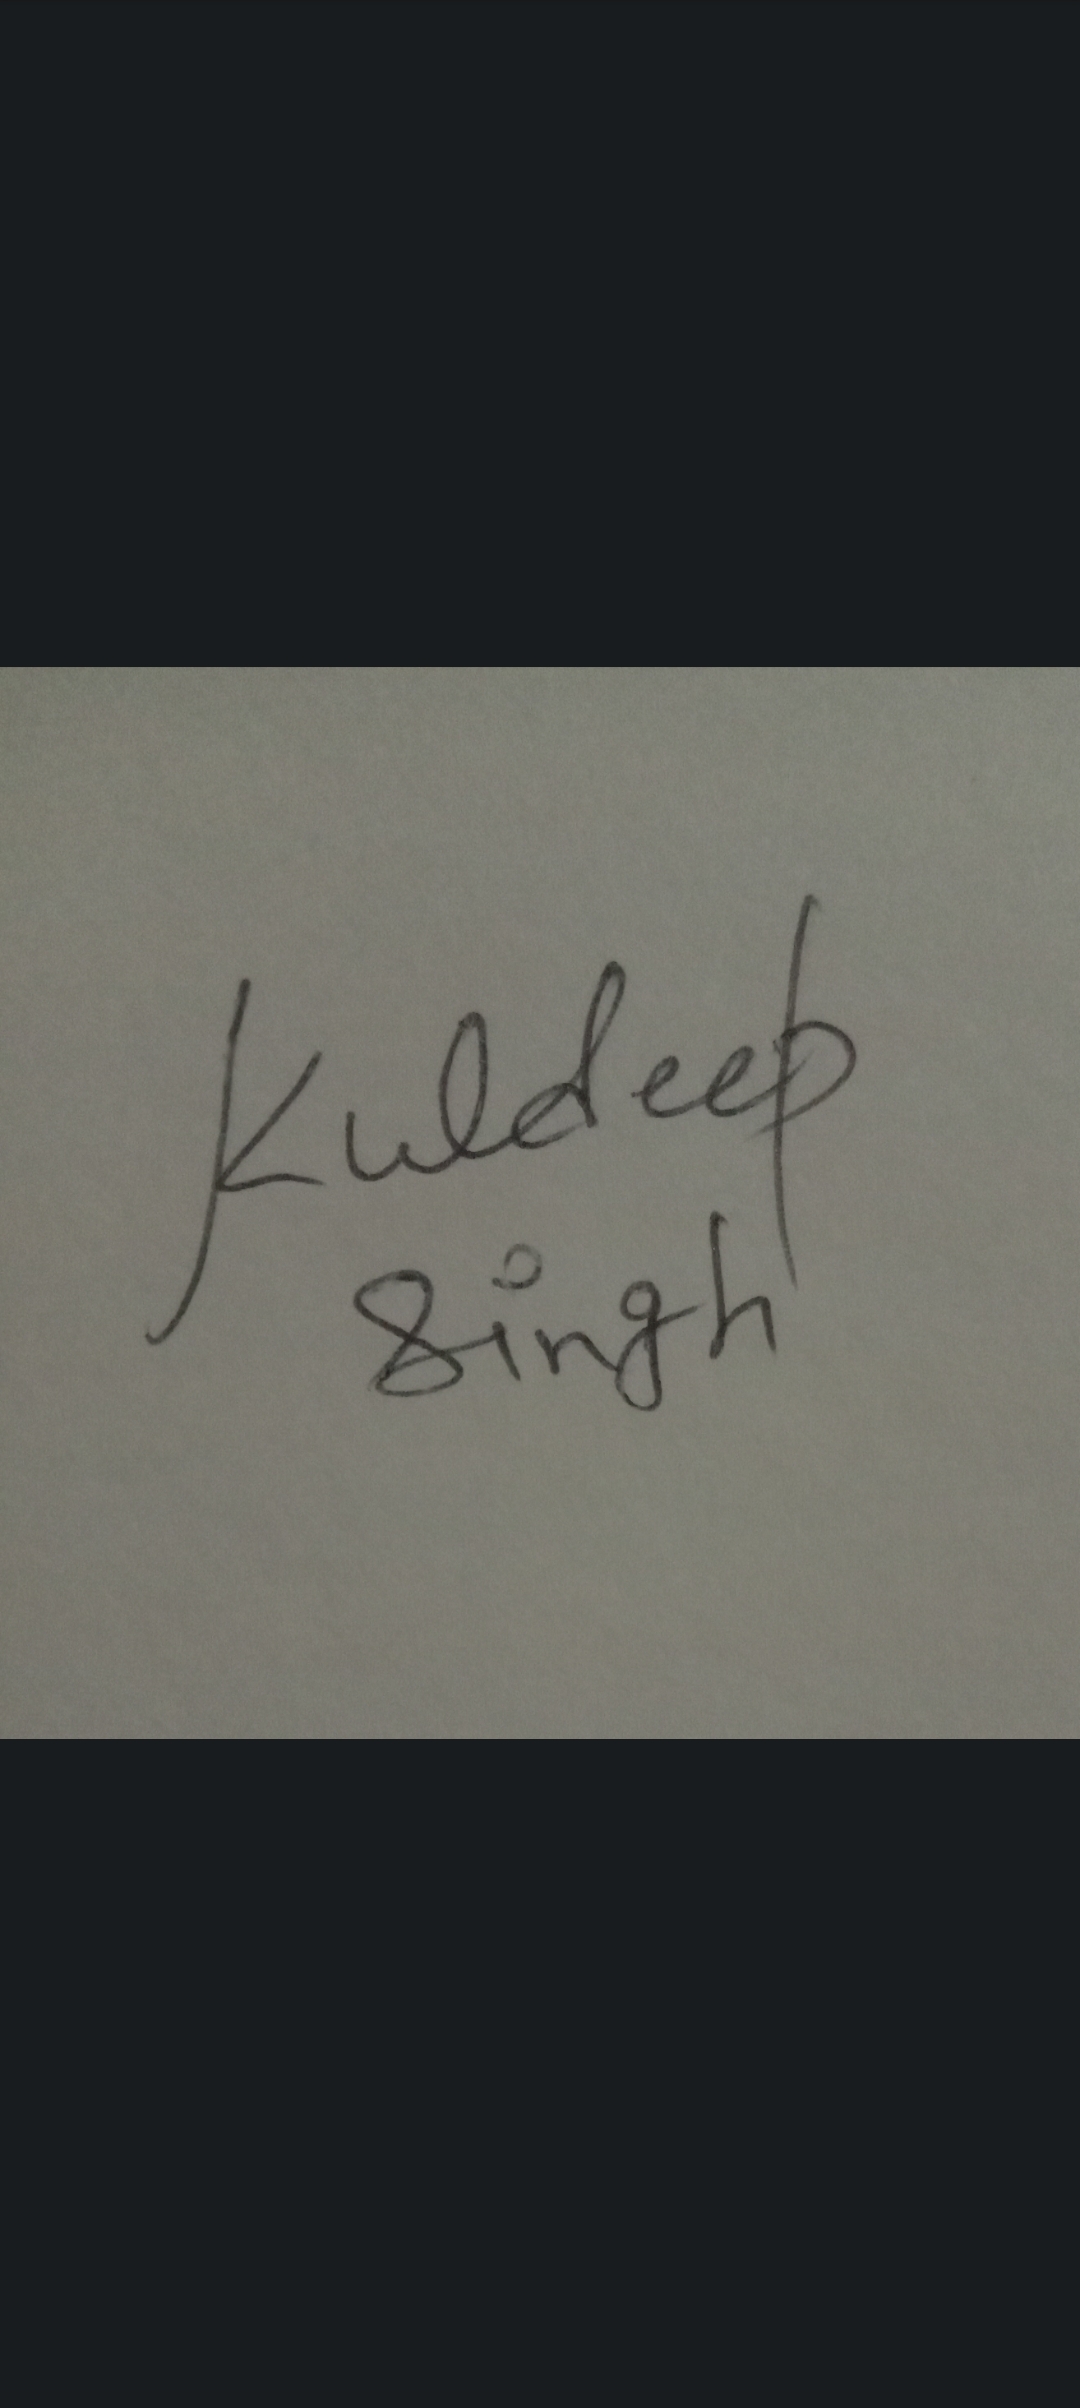 Kuldeep
Singh